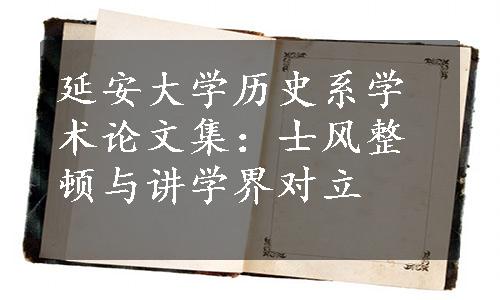 延安大学历史系学
术论文集：士风整
顿与讲学界对立